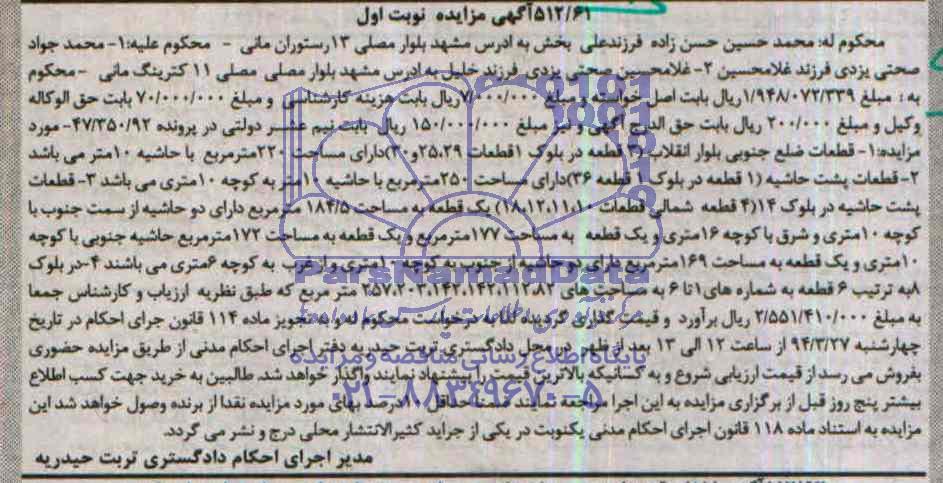 ۵۱۲/۶۱آگهی مزایده نوبت اول
محکوم له: محمد حسین حسن زاده فرزندعلی بخش به ادرس مشهد بلوار مصلی ۱۳رستوران مانی - محکوم علیه:۱- محمد جواد
صحتی یزدی فرزند غلامحسین ۲- غلامحسین صحتی یزدی فرزند خلیل به ادرس مشهد بلوار مصلی مصلی ۱۱ کترینگ مانی -محکوم
به : مبلغ ۱/۹۴۸/۰۷۲/۳۳۹ریال بابت اصل خواسته و مبلغ ۷/۰۰۰/۰۰۰ریال بابت هزینه کارشناسی و مبلغ ۷۰/۰۰۰/۰۰۰ بابت حق الوکاله
وکیل و مبلغ ۲۰۰/۰۰۰ ریال بابت حق الدرج آگهی و نیز مبلغ ۱۵۰/۰۰۰/۰۰۰ ریال بابت نیم عشر دولتی در پرونده ۴۷/۳۵۰/۹۲-مورد
مزایده:۱- قطعات ضلع جنوبی بلوار انقلاب قطعه در بلوک ۱قطعات ۲۵،۲۹و۳۰)دارای مساحت ۲۲۰مترمربع با حاشیه ۱۰متر می باشد
۲- قطعات پشت حاشیه (۱ قطعه در بلوک ۱ قطعه ۳۶)دارای مساحت ۲۵۰مترمربع با حاشیه ۱۰متر به کوچه ۱۰متری می باشد ۳- قطعات
پشت حاشیه در بلوک ۱۴(۴ قطعه شمالی قطعات ۱۸،۱۲،۱۱،۱۰) یک قطعه به مساحت ۱۸۴/۵ مترمربع دارای دو حاشیه از سمت جنوب با
کوچه ۱۰متری و شرق با کوچه ۱۶متری و یک قطعه به مساحت ۱۷۷مترمربع و یک قطعه به مساحت ۱۷۲مترمربع حاشیه جنوبی با کوچه
۱۰متری و یک قطعه به مساحت ۱۶۹مترمربع دارای دو حاشیه از جنوب به کوچه ۱۰متری و از غرب به کوچه ۶متری می باشند ۴-در بلوک
۸به ترتیب ۶ قطعه به شماره های۱تا ۶ به مساحت های متر مربع که طبق نظریه ارزیاب و کارشناس جمعا
به مبلغ ۲/۵۵۱/۴۱۰/۰۰۰ ریال برآورد و قیمت گذاری گردیده لذا به درخواست محکوم له و به تجویز ماده ۱۱۴ قانون جرای احکام در تاریخ
چهارشنبه ۹۴/۳/۲۷ از ساعت ۱۲ الی ۱۳ بعد از ظهر در محل دادگستری تربت حیدریه دفتر اجرای احکام مدنی از طریق مزایده حضوری
بفروش می رسد از قیمت ارزیابی شروع و به کسانیکه بالاترین قیمت را پیشنهاد نمایند واگذار خواهد شد. طالبین به خرید جهت کسب اطلاع
بیشتر پنج روز قبل از برگزاری مزایده به این اجرا مراجعه نمایند ضمنا حداقل ۱۰درصد بهای مورد مزایده نقدا از برنده وصول خواهد شد این
مزایده به استناد ماده ۱۱۸ قانون اجرای احکام مدنی یکنوبت در یکی از جراید کثیرالانتشار محلی درج و نشر می گردد.
مدیر اجرای احکام دادگستری تربت حیدریه
ParsNamadData
پایگاه اطلاع رسانی مناقصه و مزایده
۰۲۱-۸۸۳۴۹۶۷۰-۵